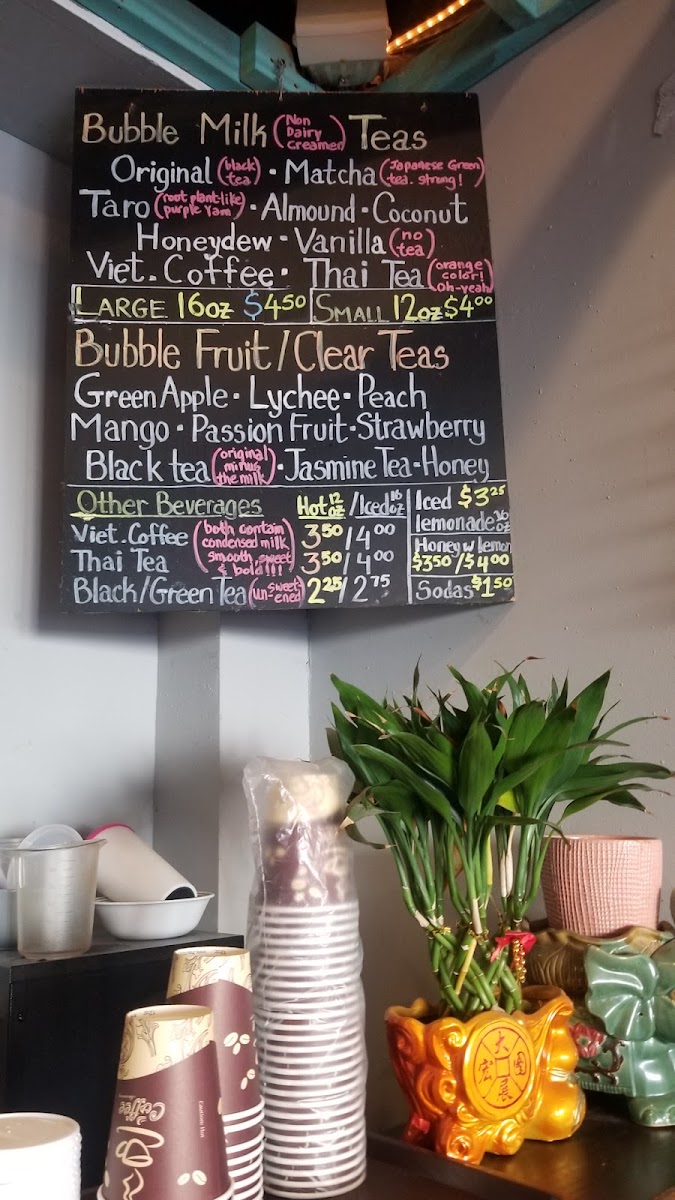 Bubble Milk (Non Dairy creamer) Teas
Original (black tea) · Matcha (Japanese Green tea. strong!)
Taro (root plant-like purple yam) · Almound · Coconut
Honeydew · Vanilla (no tea)
Viet. Coffee · Thai Tea (orange color! Oh-yeah)
LARGE 16oz $4.50 SMALL 12oz $4.00
Bubble Fruit/Clear Teas
Green Apple · Lychee · Peach
Mango · Passion Fruit · Strawberry
Black tea (original minus the milk) · Jasmine Tea · Honey
Other Beverages Hot 12 oz / Iced 16 oz
Viet. Coffee 3.50/4.00
(both contain condensed milk smooth, sweet & bold!!!)
Thai Tea 3.50/4.00
Black/Green Tea (un-sweet-ened) 2.25/2.75
Iced $3.25
lemonade 16 oz
Honey w lemon
$3.50/$4.00
Sodas $1.50
Coffee
大
展
宏
圖